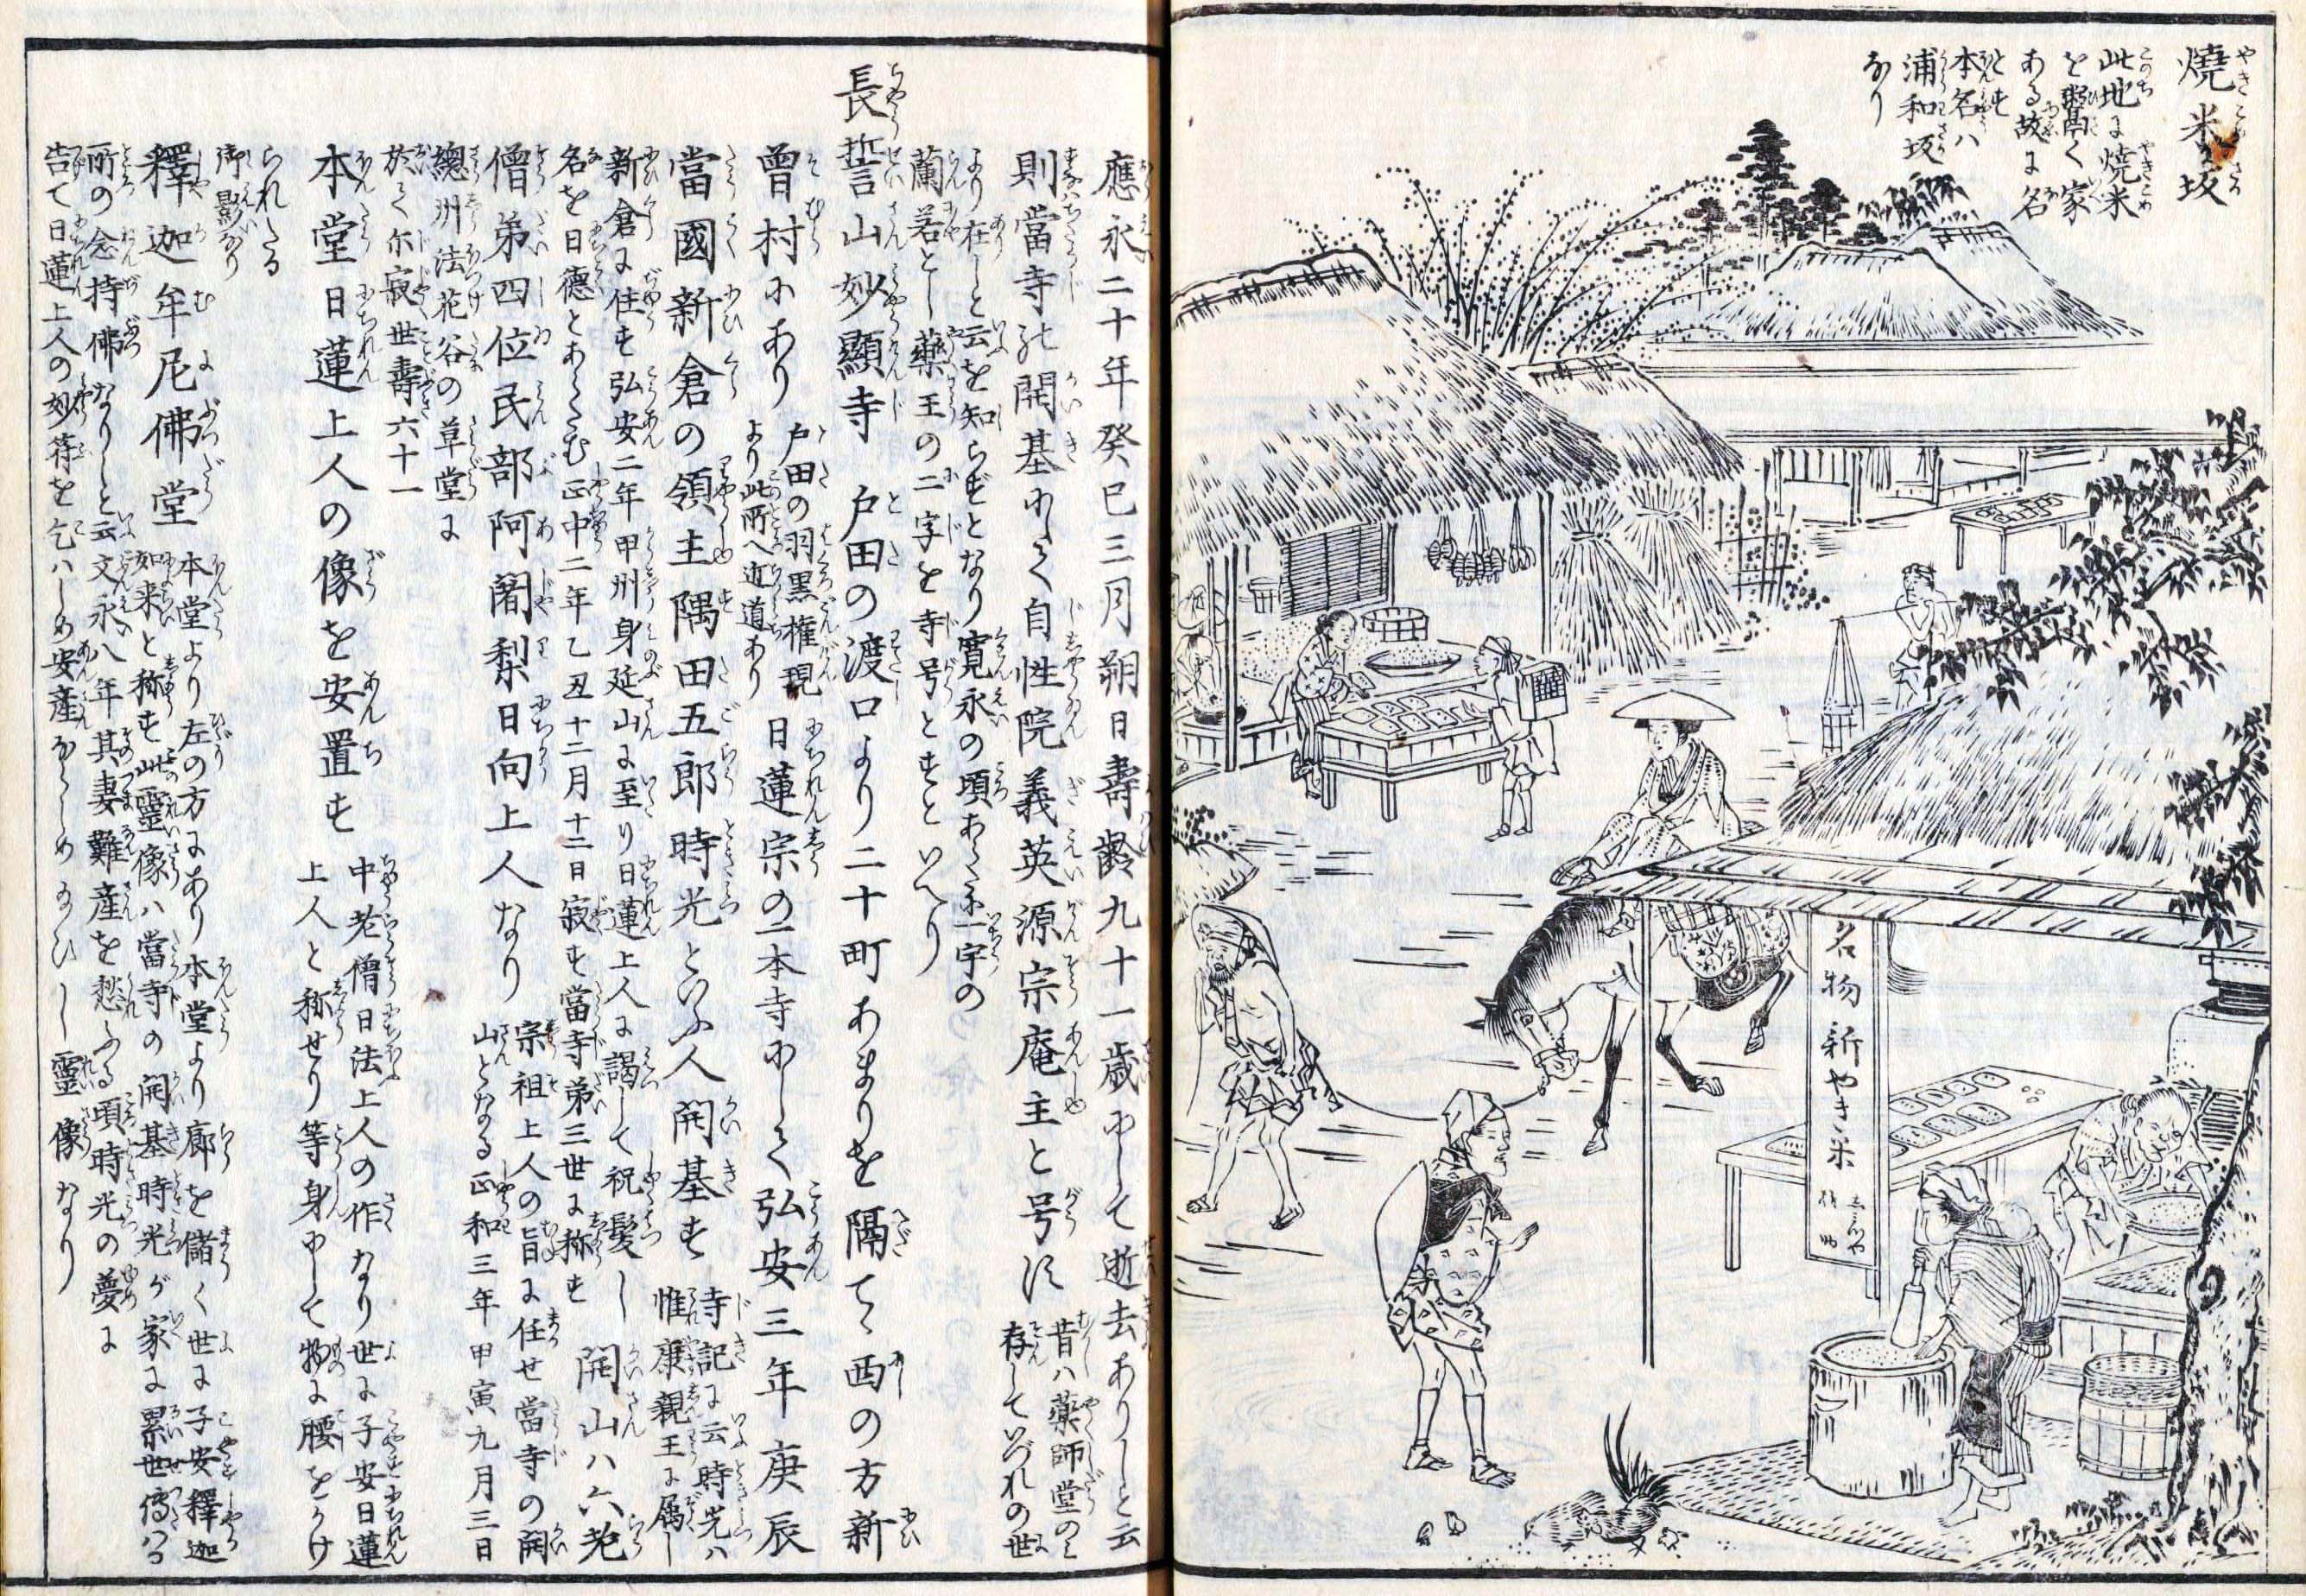 燒米坂
此地に燒米
を粥く家
ある故に名
とす
本名ハ
浦和坂
なり
名物新やき米
應永二十年癸巳三月朔日壽齡九十一歳にして逝去ありしと云
則當寺の開基にして自性院義英源宗庵主と号す
昔ハ薬師堂のミ
存していづれの世
より在しと云を知らずとなり寛永の頃あらた
蘭若とし藥王の二字を寺号とすといへり
長誓山妙顯寺
戸田の渡口より二十町あまりを隔てゝ西の方新
曽村にあり
戸田の羽黒権現
より此所へ近道あり
日蓮宗の一本寺にして弘安三年庚辰
當國新倉の領主隅田五郎時光といふ人開基す
寺記に云時光ハ
惟康親王に属し
新倉に住す弘安二年甲州身延山に至り日蓮上人に謁して祝髪し
名を日德とあらたむ正中二年乙丑十二月十二日寂す當寺弟三世に称す
開山ハ六老
僧弟四位民部阿闍梨日向上人なり
宗祖上人の旨に任せ當寺の開
山となる正和三年甲寅九月三日
總州法花谷の草堂に
於て示寂世壽六十一
本堂日蓮上人の像を安置す
中老僧日法上人の作なり世に子安日蓮
上人と称せり等身にして物に腰をかけ
られたる
御影なり
釋迦牟尼佛堂
本堂より左の方にあり本堂より廊を儲く世に子安釋迦
如来と称す此靈像ハ當寺の開基時光が家に累世傳ハる
所の念持佛なりしと云文永八年其妻難産を愁ふる頃時光の夢に
告て日蓮上人の妙符を乞ハしめ安産なさしめ給ひし靈像なり